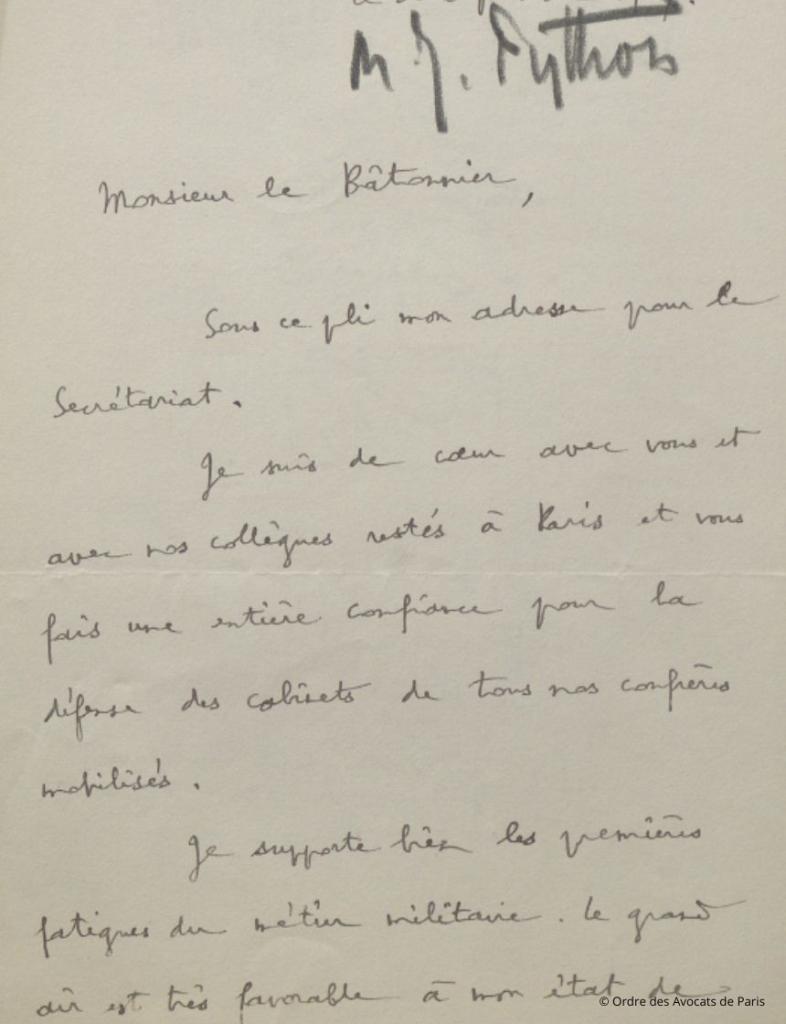 M J. Python
Monsieur le Bâtonnier,
Sous ce pli mon adresse pour le
Secrétariat.
Je suis de cœur avec vous et
avec nos collègues restés à Paris et vous
fais une entière confiance pour la
défense des cabinets de tous nos confrères
mobilisés.
Je supporte bien les premières
fatigues du métier militaire. Le grand
air est très favorable à mon état de
© Ordre des Avocats de Paris